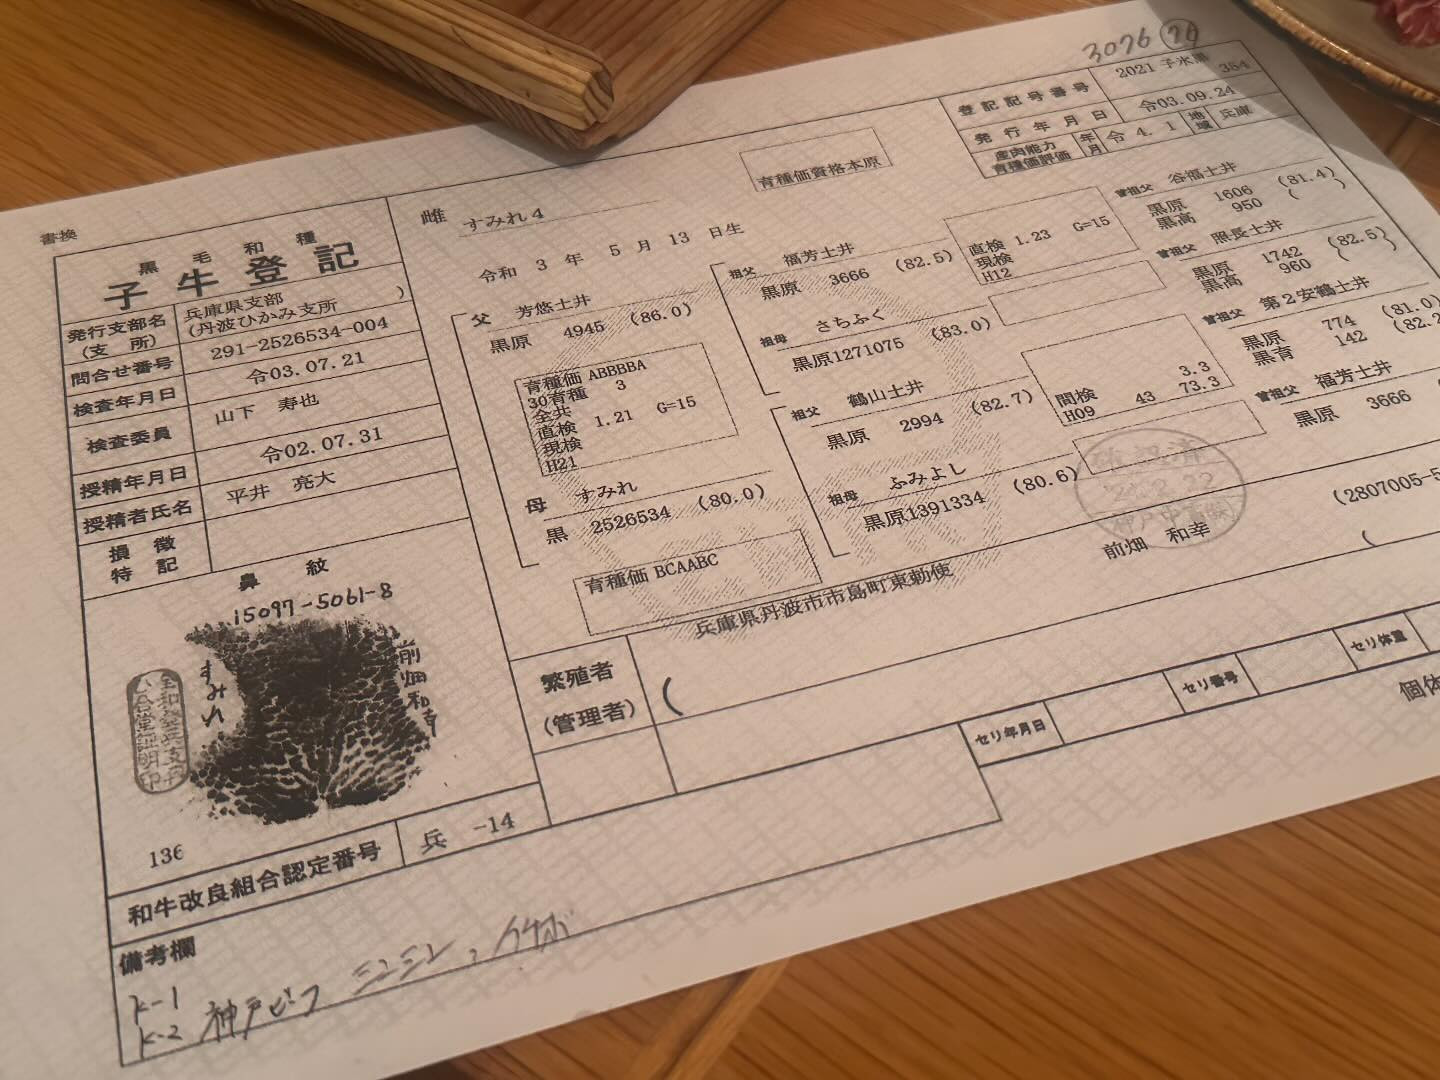 3076 76
登記記号番号 2021 子氷黒 384
発行年月日 令03.09.24
産肉能力育種価評価 年月 令 4. 1 地域 兵庫
育種価資格本原
書換
黒毛和種
子牛登記
発行支部名(支所) 兵庫県支部(丹波ひかみ支所)
問合せ番号 291-2526534-004
検査年月日 令03.07.21
検査委員 山下 寿也
授精年月日 令02.07.31
授精者氏名 平井 亮大
損徴特記
鼻紋
15097-5061-8
すみれ
前畑和幸
136
和牛改良組合認定番号 兵 -14
備考欄
K-1
K-2 神戸ビーフ
雌 すみれ4
令和 3 年 5 月 13 日生
父 芳悠土井
黒原 4945 (86.0)
育種価 ABBBBA
30育種 3
全共
直検 1.21 G=15
現検
H21
母 すみれ
黒 2526534 (80.0)
育種価 BCAABC
祖父 福芳土井
黒原 3666 (82.5)
直検 1.23 G=15
現検
H12
祖母 さちふく
黒原1271075 (83.0)
祖父 鶴山土井
黒原 2994 (82.7)
間検 3.3
H09 43 73.3
祖母 ふみよし
黒原1391334 (80.6)
曽祖父 谷福土井
黒原 1606 (81.4)
黒高 950 ( )
曽祖父 照長土井
黒原 1742 (82.5)
黒高 960 ( )
曽祖父 第2安鶴土井
黒原 774 (81.0)
黒育 142 (82.2
曽祖父 福芳土井
黒原 3666
繁殖者(管理者)
兵庫県丹波市市島町東勅使
前畑 和幸
(2807005-5
(
(
セリ年月日
セリ番号
セリ体重
個体